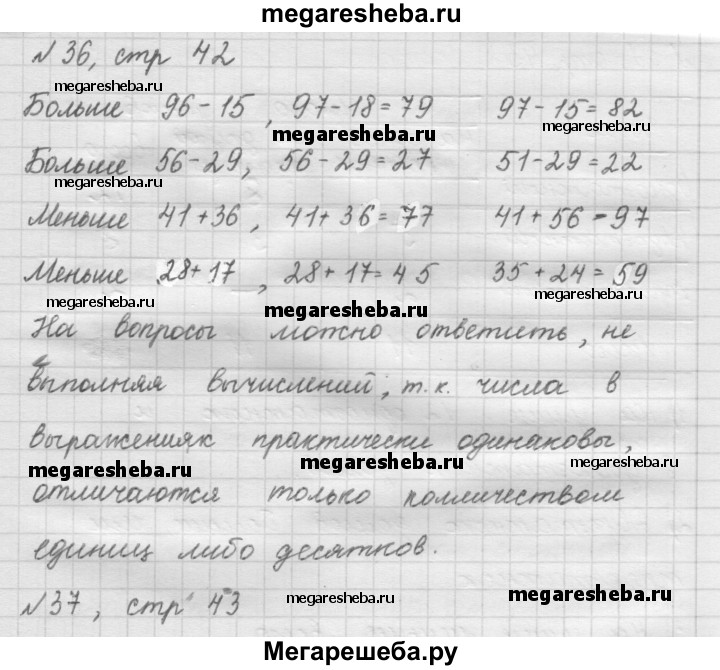 megaresheba.ru
№36, стр 42
megaresheba.ru
Больше 96-15, 97-18=79 97-15=82
megaresheba.ru megaresheba.ru
Больше 56-29, 56-29=27 51-29=22
megaresheba.ru
Меньше 41+36, 41+36=77 41+56=97
Меньше 28+17, 28+17=45 35+24=59
megaresheba.ru megaresheba.ru megaresheba.ru
На вопросы можно ответить, не
выполняя вычислений, т.к. числа в
выраженияк практически одинаковы,
megaresheba.ru megaresheba.ru megaresheba.ru
отличаются только колличеством
единиц либо десятков.
№37, стр 43
megaresheba.ru megaresheba.ru
Мегарешеба.ру